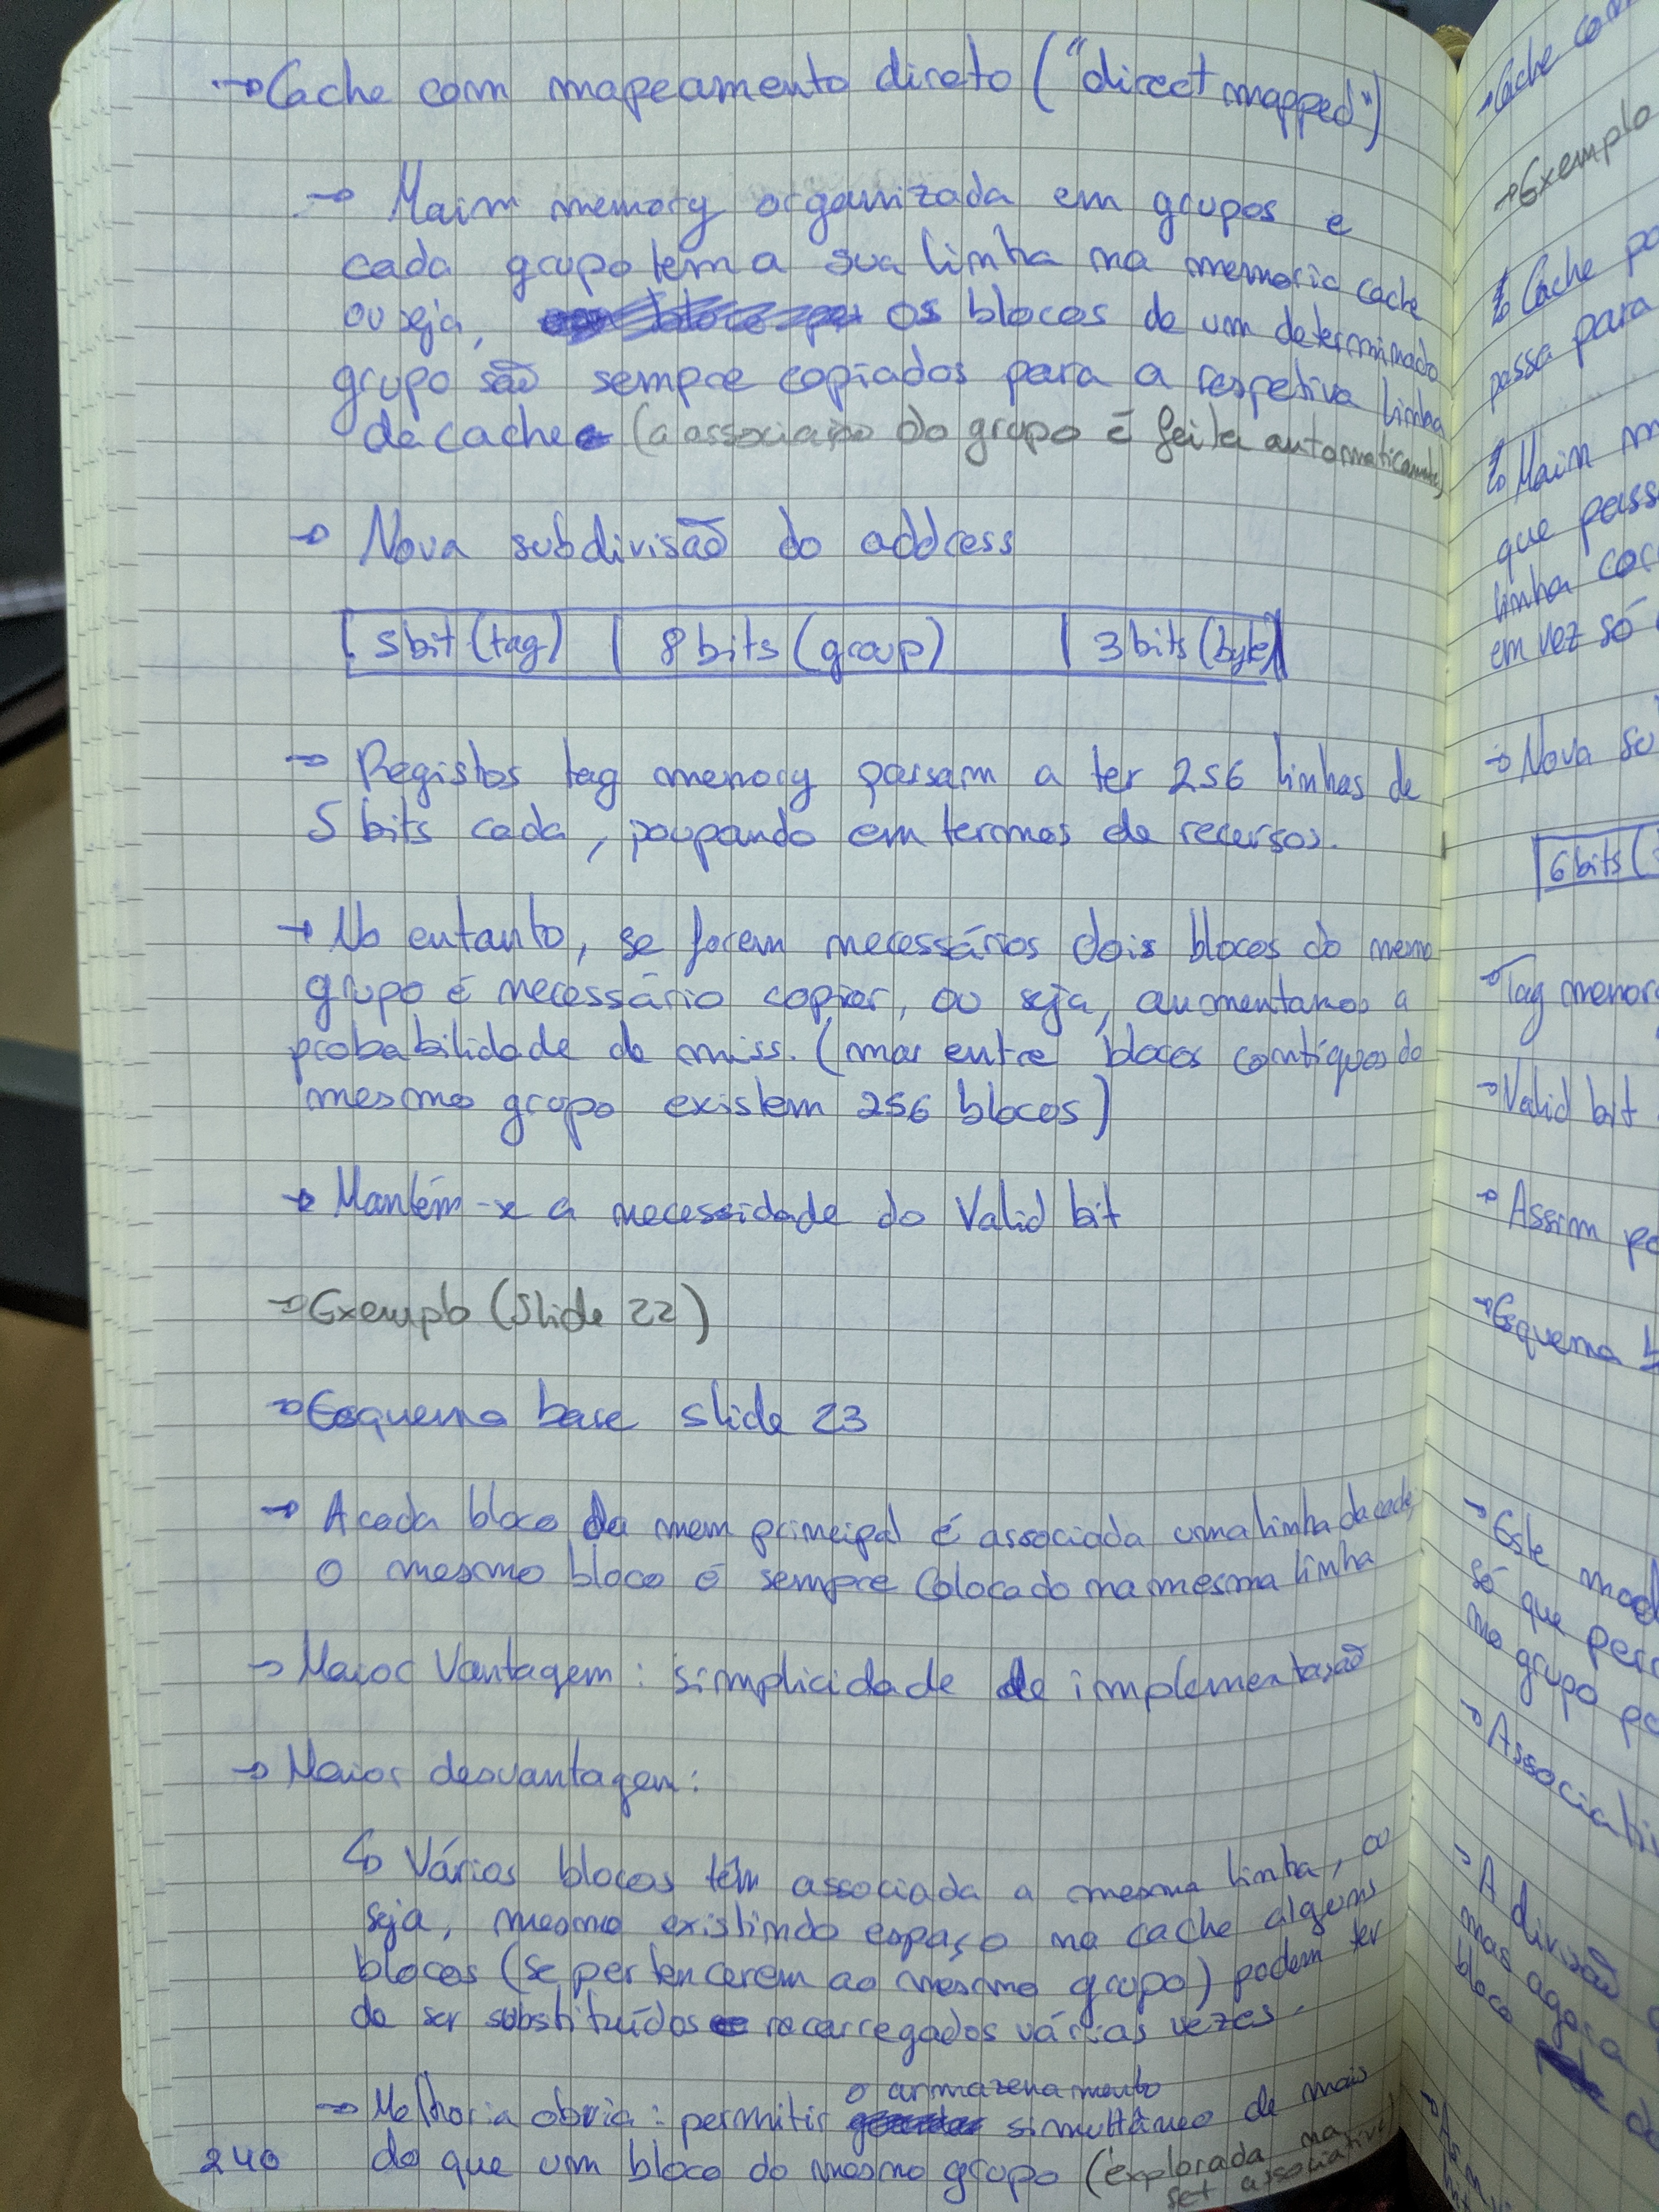 → Cache com mapeamento direto ("direct mapped")
→ Main memory organizada em grupos e
cada grupo tem a sua linha na memoria cache
ou seja, os blocos de um determinado
grupo são sempre copiados para a respetiva linha
da cache (a associação do grupo é feita automaticamente)
→ Nova subdivisão do address
| 5bit (tag) | 8bits (group) | 3bits (byte) |
→ Registos tag memory passam a ter 256 linhas de
5 bits cada, poupando em termos de recursos.
→ No entanto, se forem necessários dois blocos do mesmo
grupo é necessário copiar, ou seja, aumentamos a
probabilidade de miss. (mas entre blocos contíguos do
mesmo grupo existem 256 blocos)
→ Mantém-se a necessidade do Valid bit
→ Exemplo (Slide 22)
→ Esquema base slide 23
→ A cada bloco da mem principal é associada uma linha da cache,
o mesmo bloco é sempre colocado na mesma linha
→ Maior Vantagem: simplicidade de implementação
→ Maior desvantagem:
↳ Vários blocos têm associada a mesma linha, ou
seja, mesmo existindo espaço na cache alguns
blocos (se pertencerem ao mesmo grupo) podem ter
de ser substituídos e recarregados várias vezes.
→ Melhoria obvia: permitir o armazenamento simultâneo de mais
do que um bloco do mesmo grupo (explorada na
set associative)
240
→ Cache
→ Exemplo
↳ Cache
passa para
↳ Main
que
linha
em vez só
→ Nova
6bits (
→ Tag
→ Valid bit
→ Assim
→ Esquema
→ Este
só que
no grupo
→ A divisão
mas agora
bloco